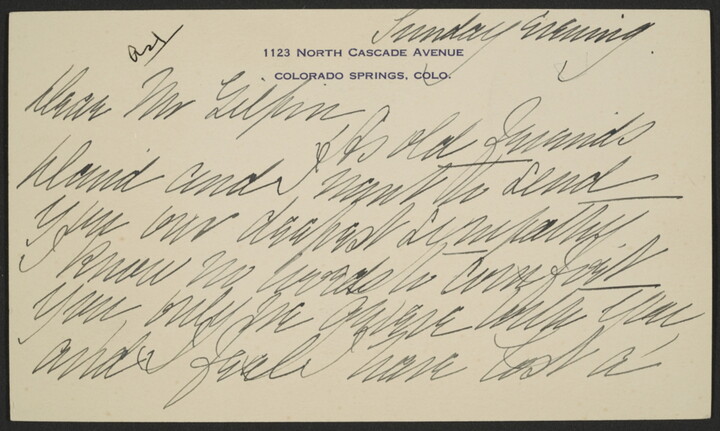 Sunday Evening.
ask
1123 North Cascade Avenue
Colorado Springs, Colo.
Dear Mr Gilpin
As old friends
David and I want to send
you our deepest sympathy
I know no words to comfort
you only we grieve with you
and I feel I have lost a